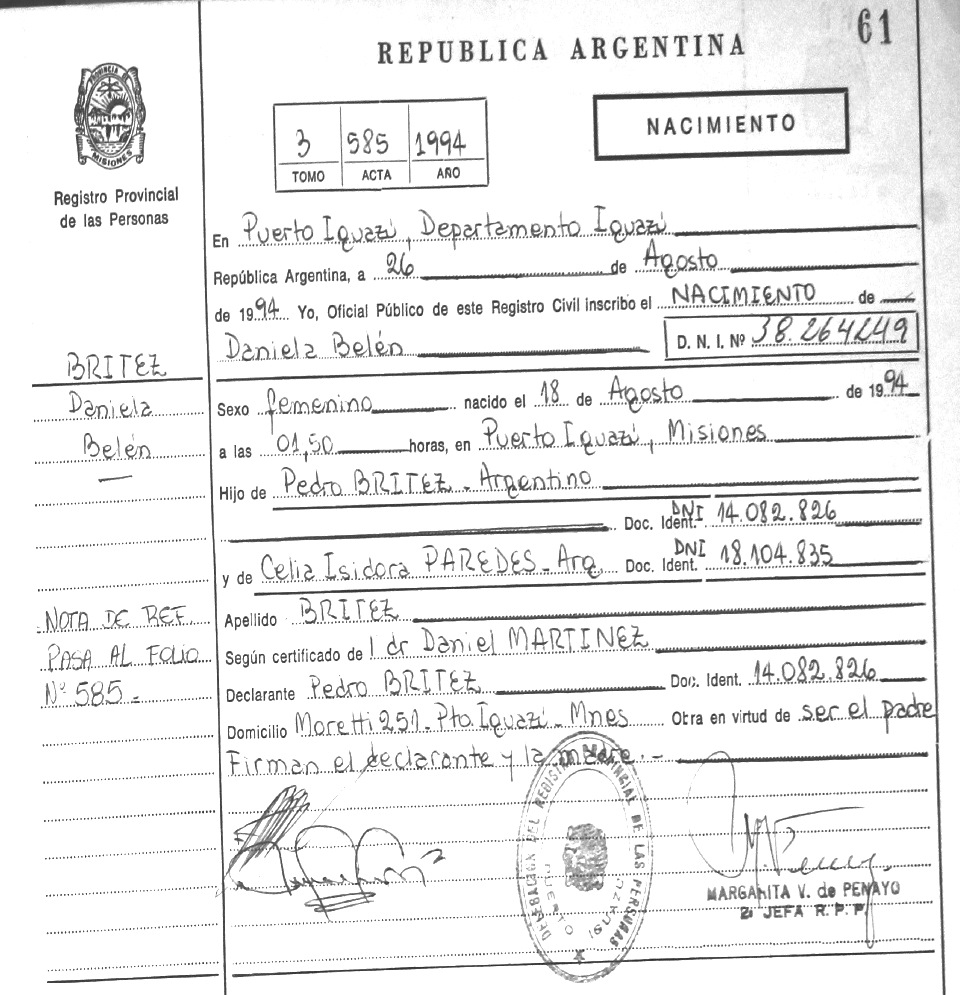 61
REPUBLICA ARGENTINA
PROVINCIA DE
MISIONES
Registro Provincial
de las Personas
3 585 1994
TOMO ACTA AÑO
NACIMIENTO
En Puerto Iguazú, Departamento Iguazú
República Argentina, a 26 de Agosto
de 1994 Yo, Oficial Público de este Registro Civil inscribo el NACIMIENTO de
Daniela Belén D. N. I. Nº 38.264249
BRITEZ
Daniela
Belén
Sexo femenino nacido el 18 de Agosto de 1994
a las 01,50 horas, en Puerto Iguazú, Misiones
Hijo de Pedro BRITEZ - Argentino
Doc. Ident. DNI 14.082.826
y de Celia Isidora PAREDES - Arg Doc. Ident. DNI 18.104.835
Apellido BRITEZ
NOTA DE REF.
PASA AL FOLIO
Nº 585 -
Según certificado de l dr Daniel MARTINEZ
Declarante Pedro BRITEZ Doc. Ident. 14.082.826
Domicilio Moretti 251 - Pto. Iguazú - Mnes Otra en virtud de ser el padre
Firman el declarante y la madre. -
DEL REGISTRO PROVINCIAL DE LAS PERSONAS
PUERTO IGUAZU
MARGARITA V. de PENAYO
2ª JEFA R. P. P.